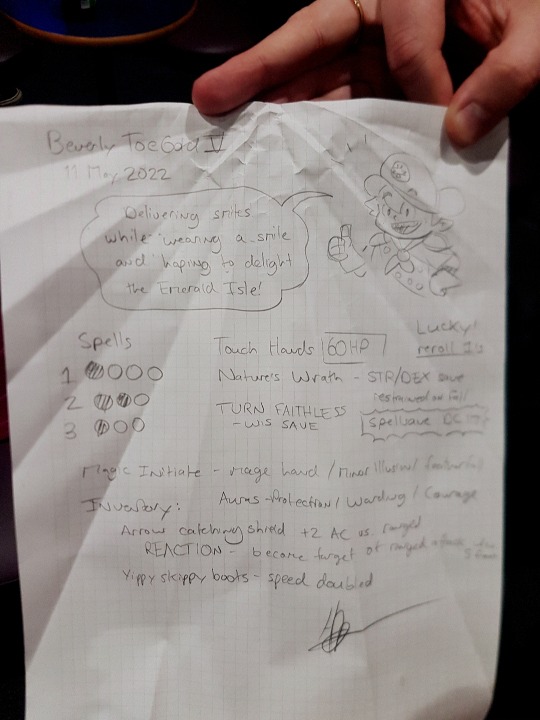 Beverly Toegold V
11 May 2022
Delivering smites
while wearing a smile
and hoping to delight
the Emerald Isle!
Lucky!
reroll 1's
Spells
1
2
3
Touch Hands 60HP
Nature's Wrath - STR/DEX save
restrained on fail
TURN FAITHLESS
- WIS SAVE
Spellsave DC
Magic Initiate - mage hand / minor illusion / featherfall
Auras - Protection / Warding / Courage
Inventory:
Arrow catching shield +2 AC vs. ranged
REACTION - become target of ranged attack
Yippy skippy boots - speed doubled